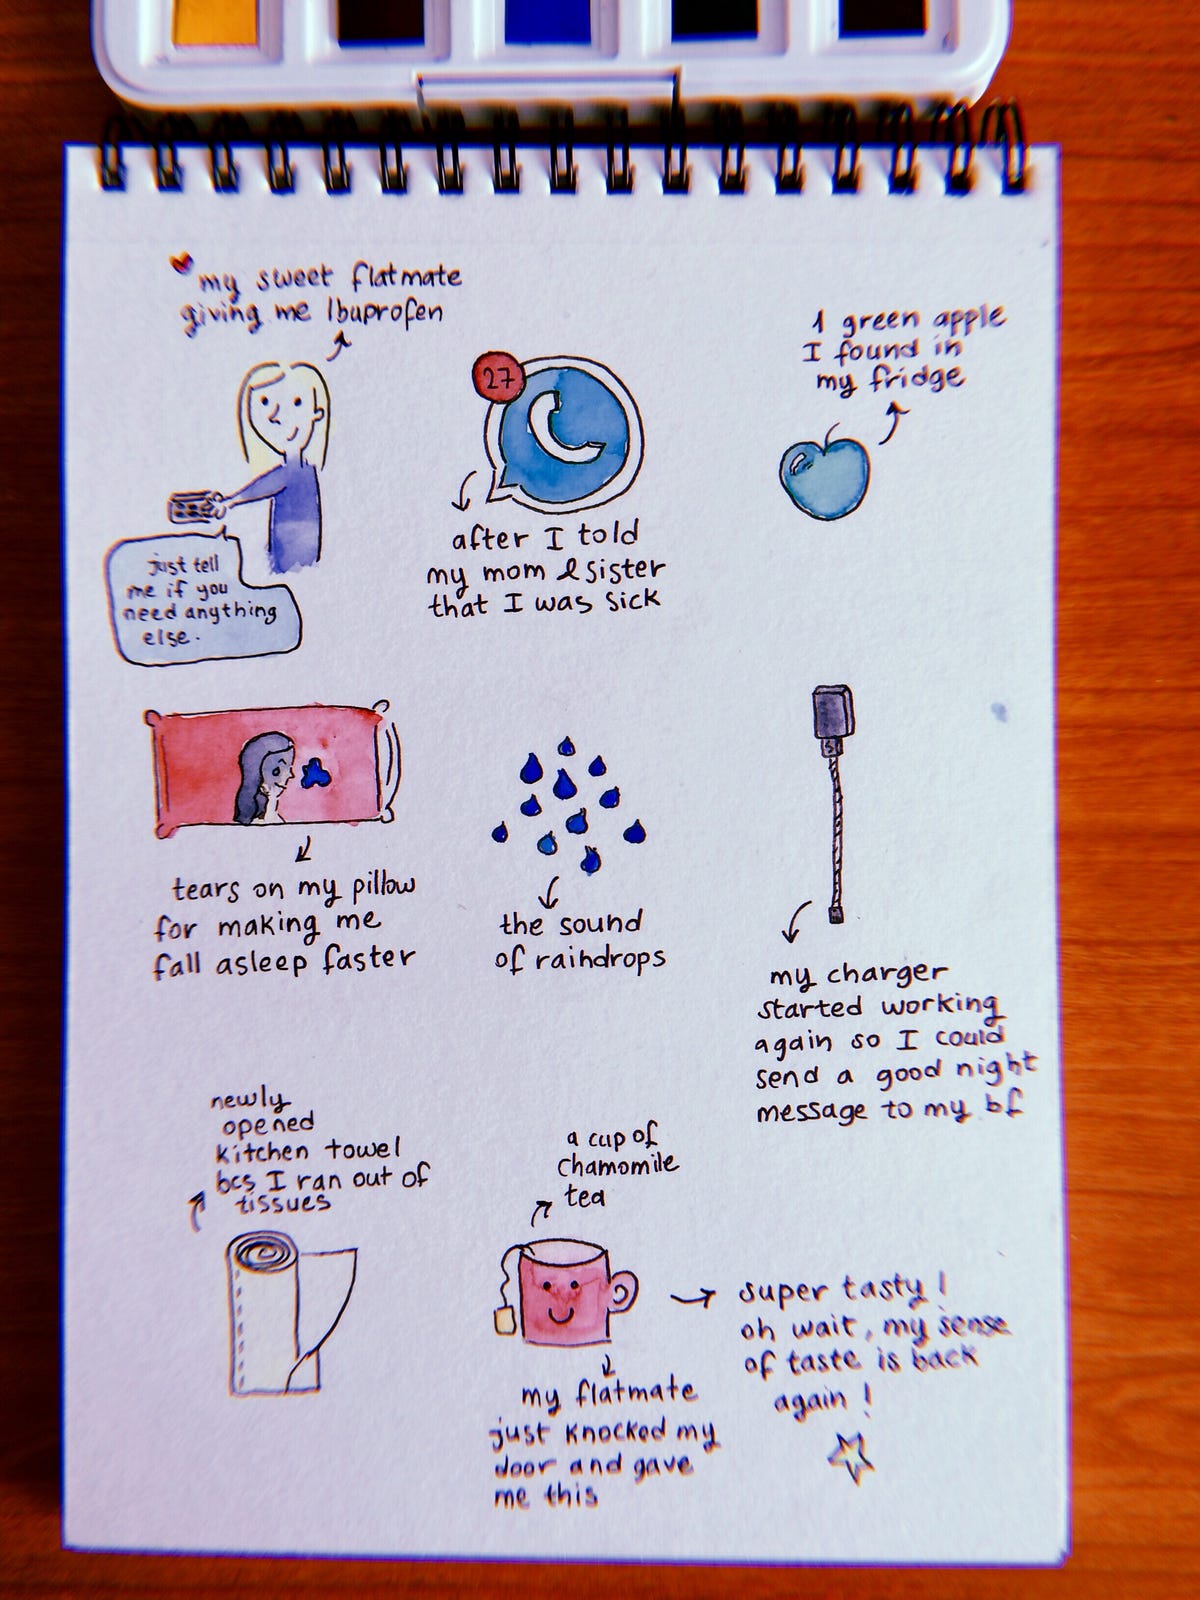 my sweet flatmate
giving me Ibuprofen
just tell
me if you
need anything
else.
27
after I told
my mom & sister
that I was sick
1 green apple
I found in
my fridge
tears on my pillow
for making me
fall asleep faster
the sound
of raindrops
my charger
started working
again so I could
send a good night
message to my bf
newly
opened
kitchen towel
bcs I ran out of
tissues
a cup of
chamomile
tea
my flatmate
just knocked my
door and gave
me this
super tasty!
oh wait, my sense
of taste is back
again!